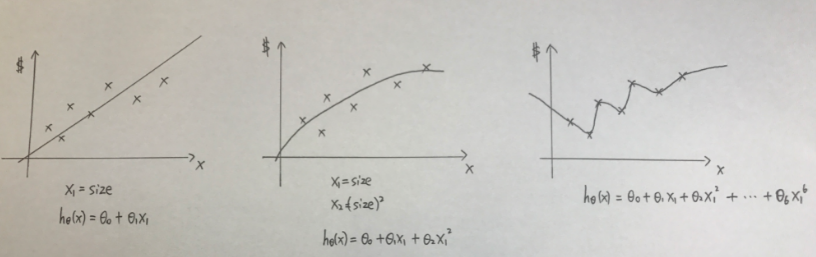 $
x
x₁ = size
hθ(x) = θ₀ + θ₁x₁
$
x
x₁ = size
x₂ = (size)²
hθ(x) = θ₀ + θ₁x₁ + θ₂x₁²
$
x
hθ(x) = θ₀ + θ₁x₁ + θ₂x₁² + ⋯ + θ₆x₁⁶